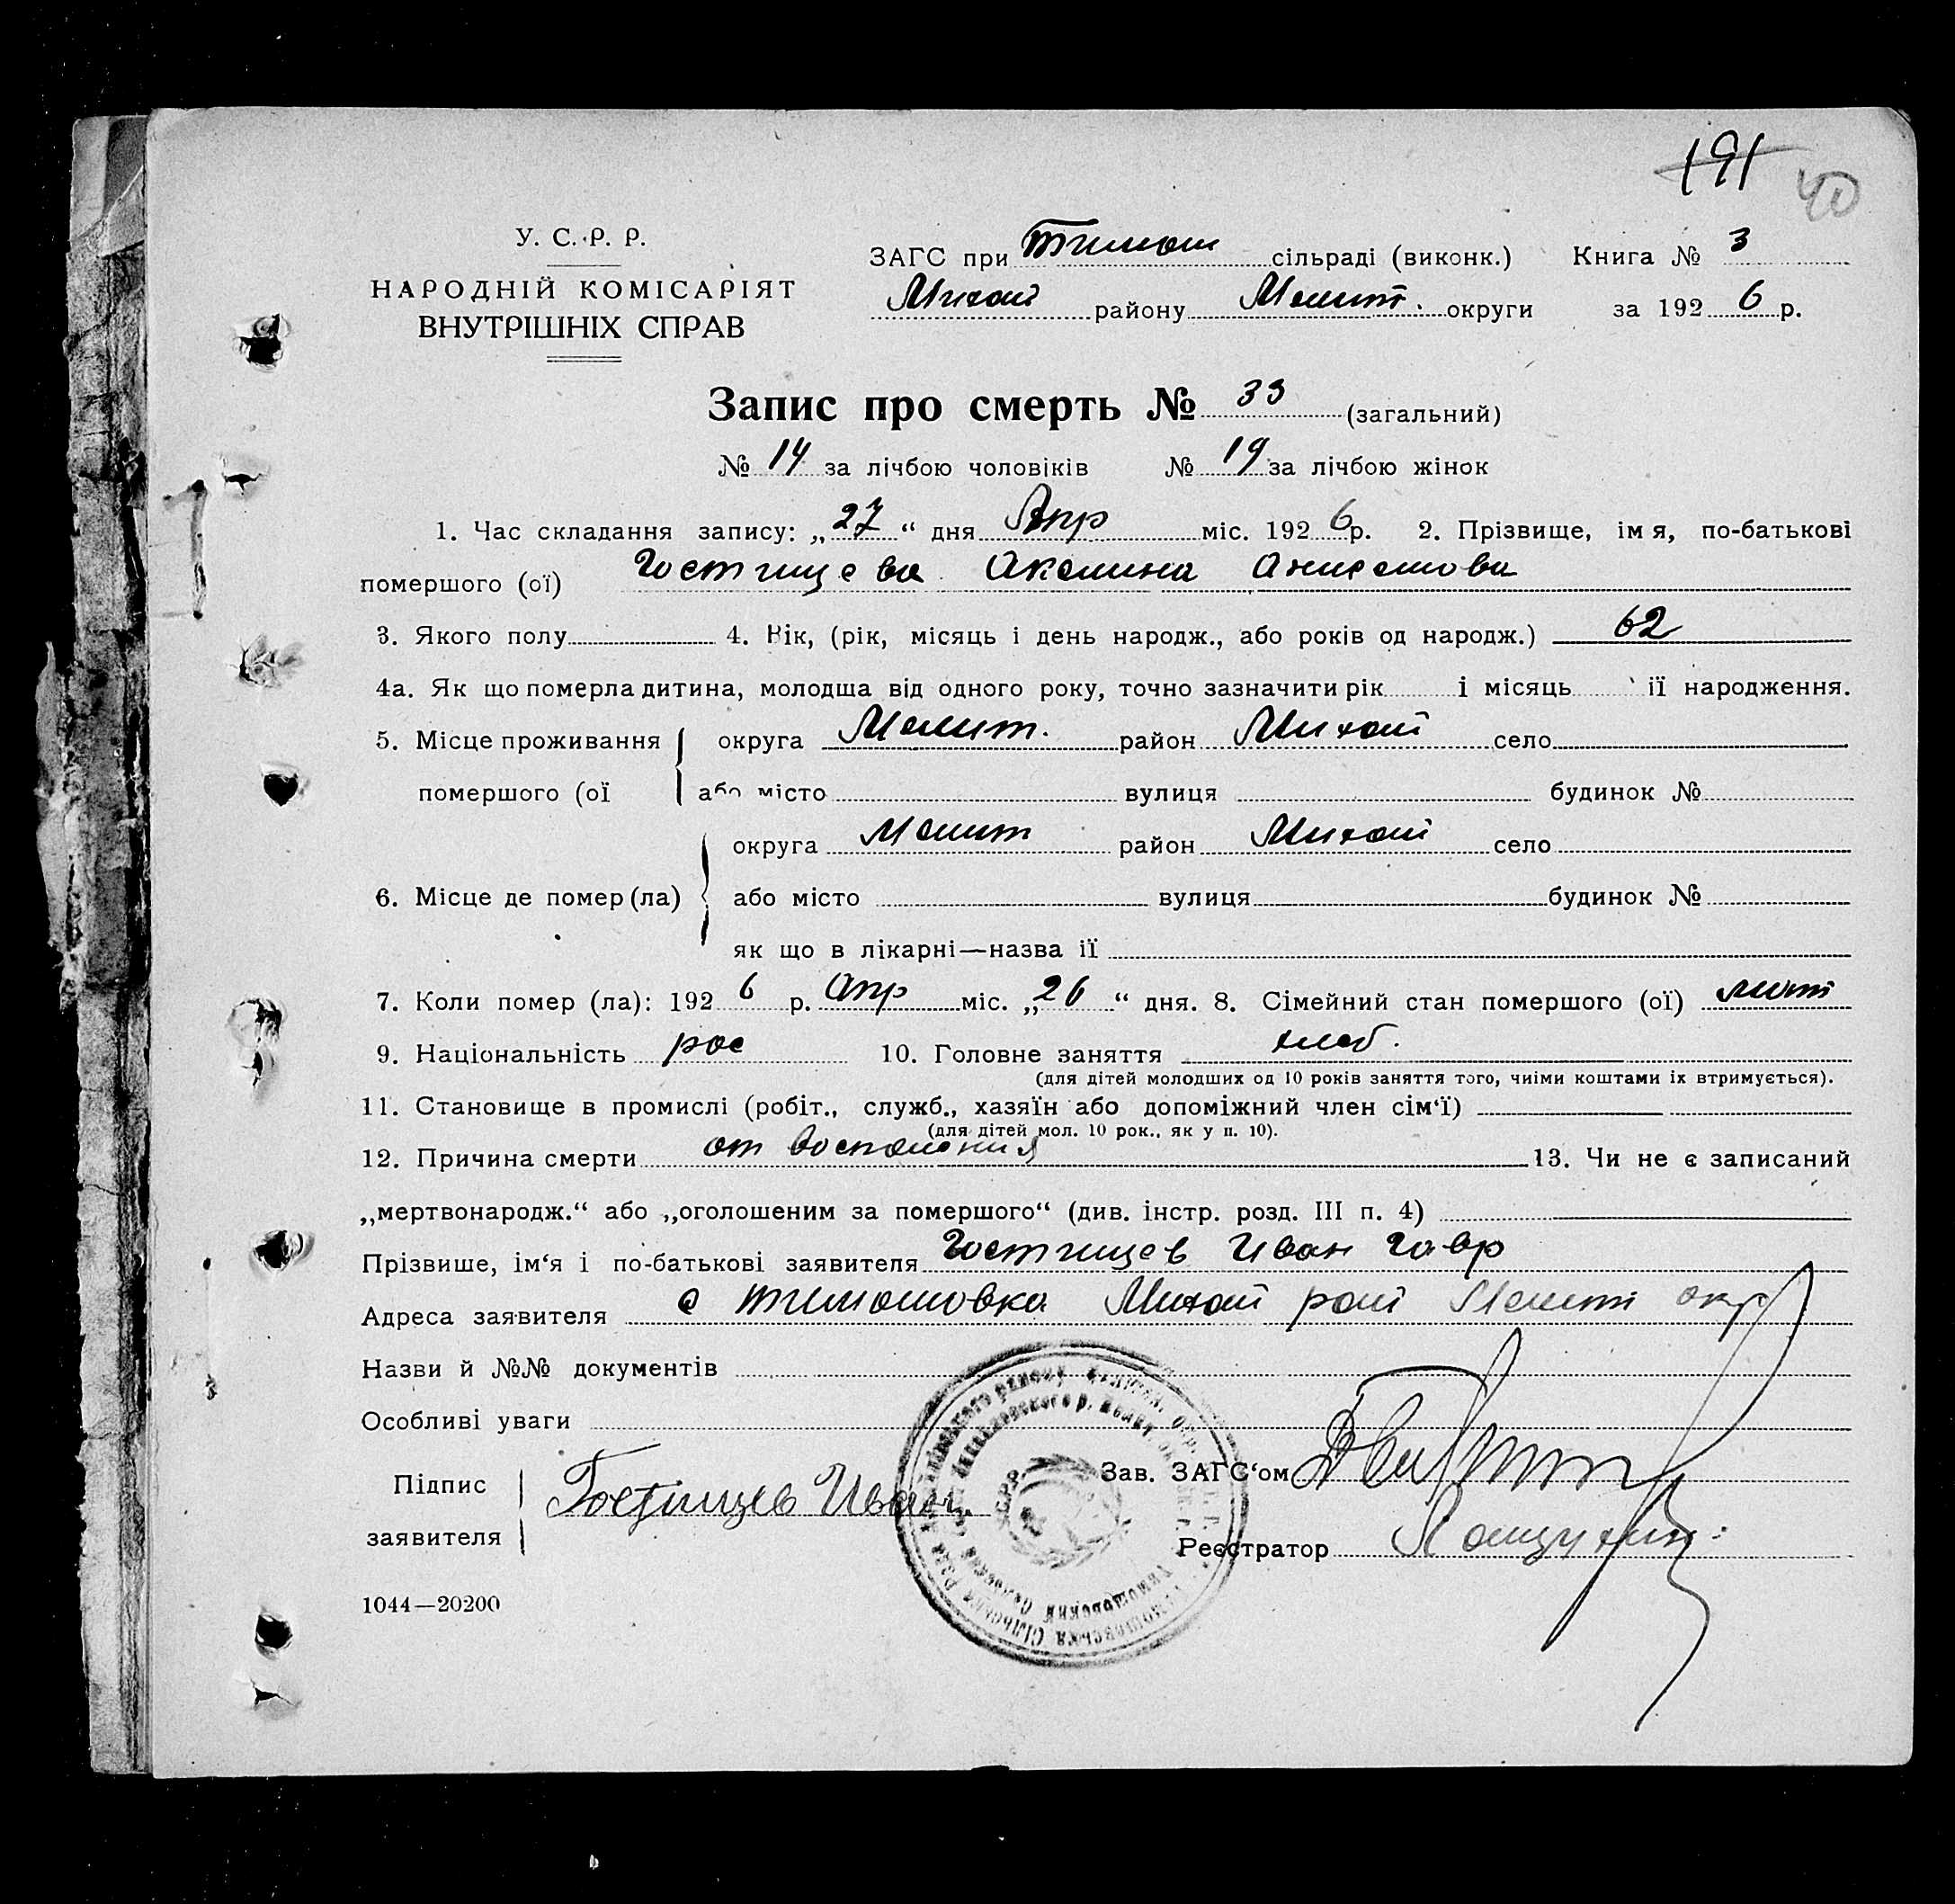 191 40
У. С. Р. Р.
НАРОДНІЙ КОМІСАРІЯТ
ВНУТРІШНІХ СПРАВ
ЗАГС при Тимош сільраді (виконк.) Книга № 3
Михай району Мелит. округи за 1926 р.
Запис про смерть № 33 (загальний)
№ 14 за лічбою чоловіків № 19 за лічбою жінок
1. Час складання запису: „27“ дня Апр міс. 1926 р. 2. Прізвище, імя, по-батькові
помершого (ої) Гостищева Акелина Анисемова
3. Якого полу 4. Вік, (рік, місяць і день народж., або років од народж.) 62
4а. Як що померла дитина, молодша від одного року, точно зазначити рік і місяць її народження.
5. Місце проживання округа Мелит. район Михай село
помершого (ої або місто вулиця будинок №
округа Мелит район Михай село
6. Місце де помер (ла) або місто вулиця будинок №
як що в лікарні—назва її
7. Коли помер (ла): 1926 р. Апр міс. „26“ дня. 8. Сімейний стан помершого (ої)
9. Національність рос 10. Головне заняття хлеб.
(для дітей молодших од 10 років заняття того, чиїми коштами їх втримується).
11. Становище в промислі (робіт., служб., хазяїн або допоміжний член сім‘ї)
(для дітей мол. 10 рок., як у п. 10).
12. Причина смерти от воспаления 13. Чи не є записаний
„мертвонародж.“ або „оголошеним за помершого“ (див. інстр. розд. III п. 4)
Прізвише, ім‘я і по-батькові заявителя Гостищев Иван Гавр
Адреса заявителя с Тимошовка Михай рай Мелит окр
Назви й №№ документів
Особливі уваги
Підпис
заявителя Гостищев Иван
Зав. ЗАГС‘ом
Реєстратор
1044—20200